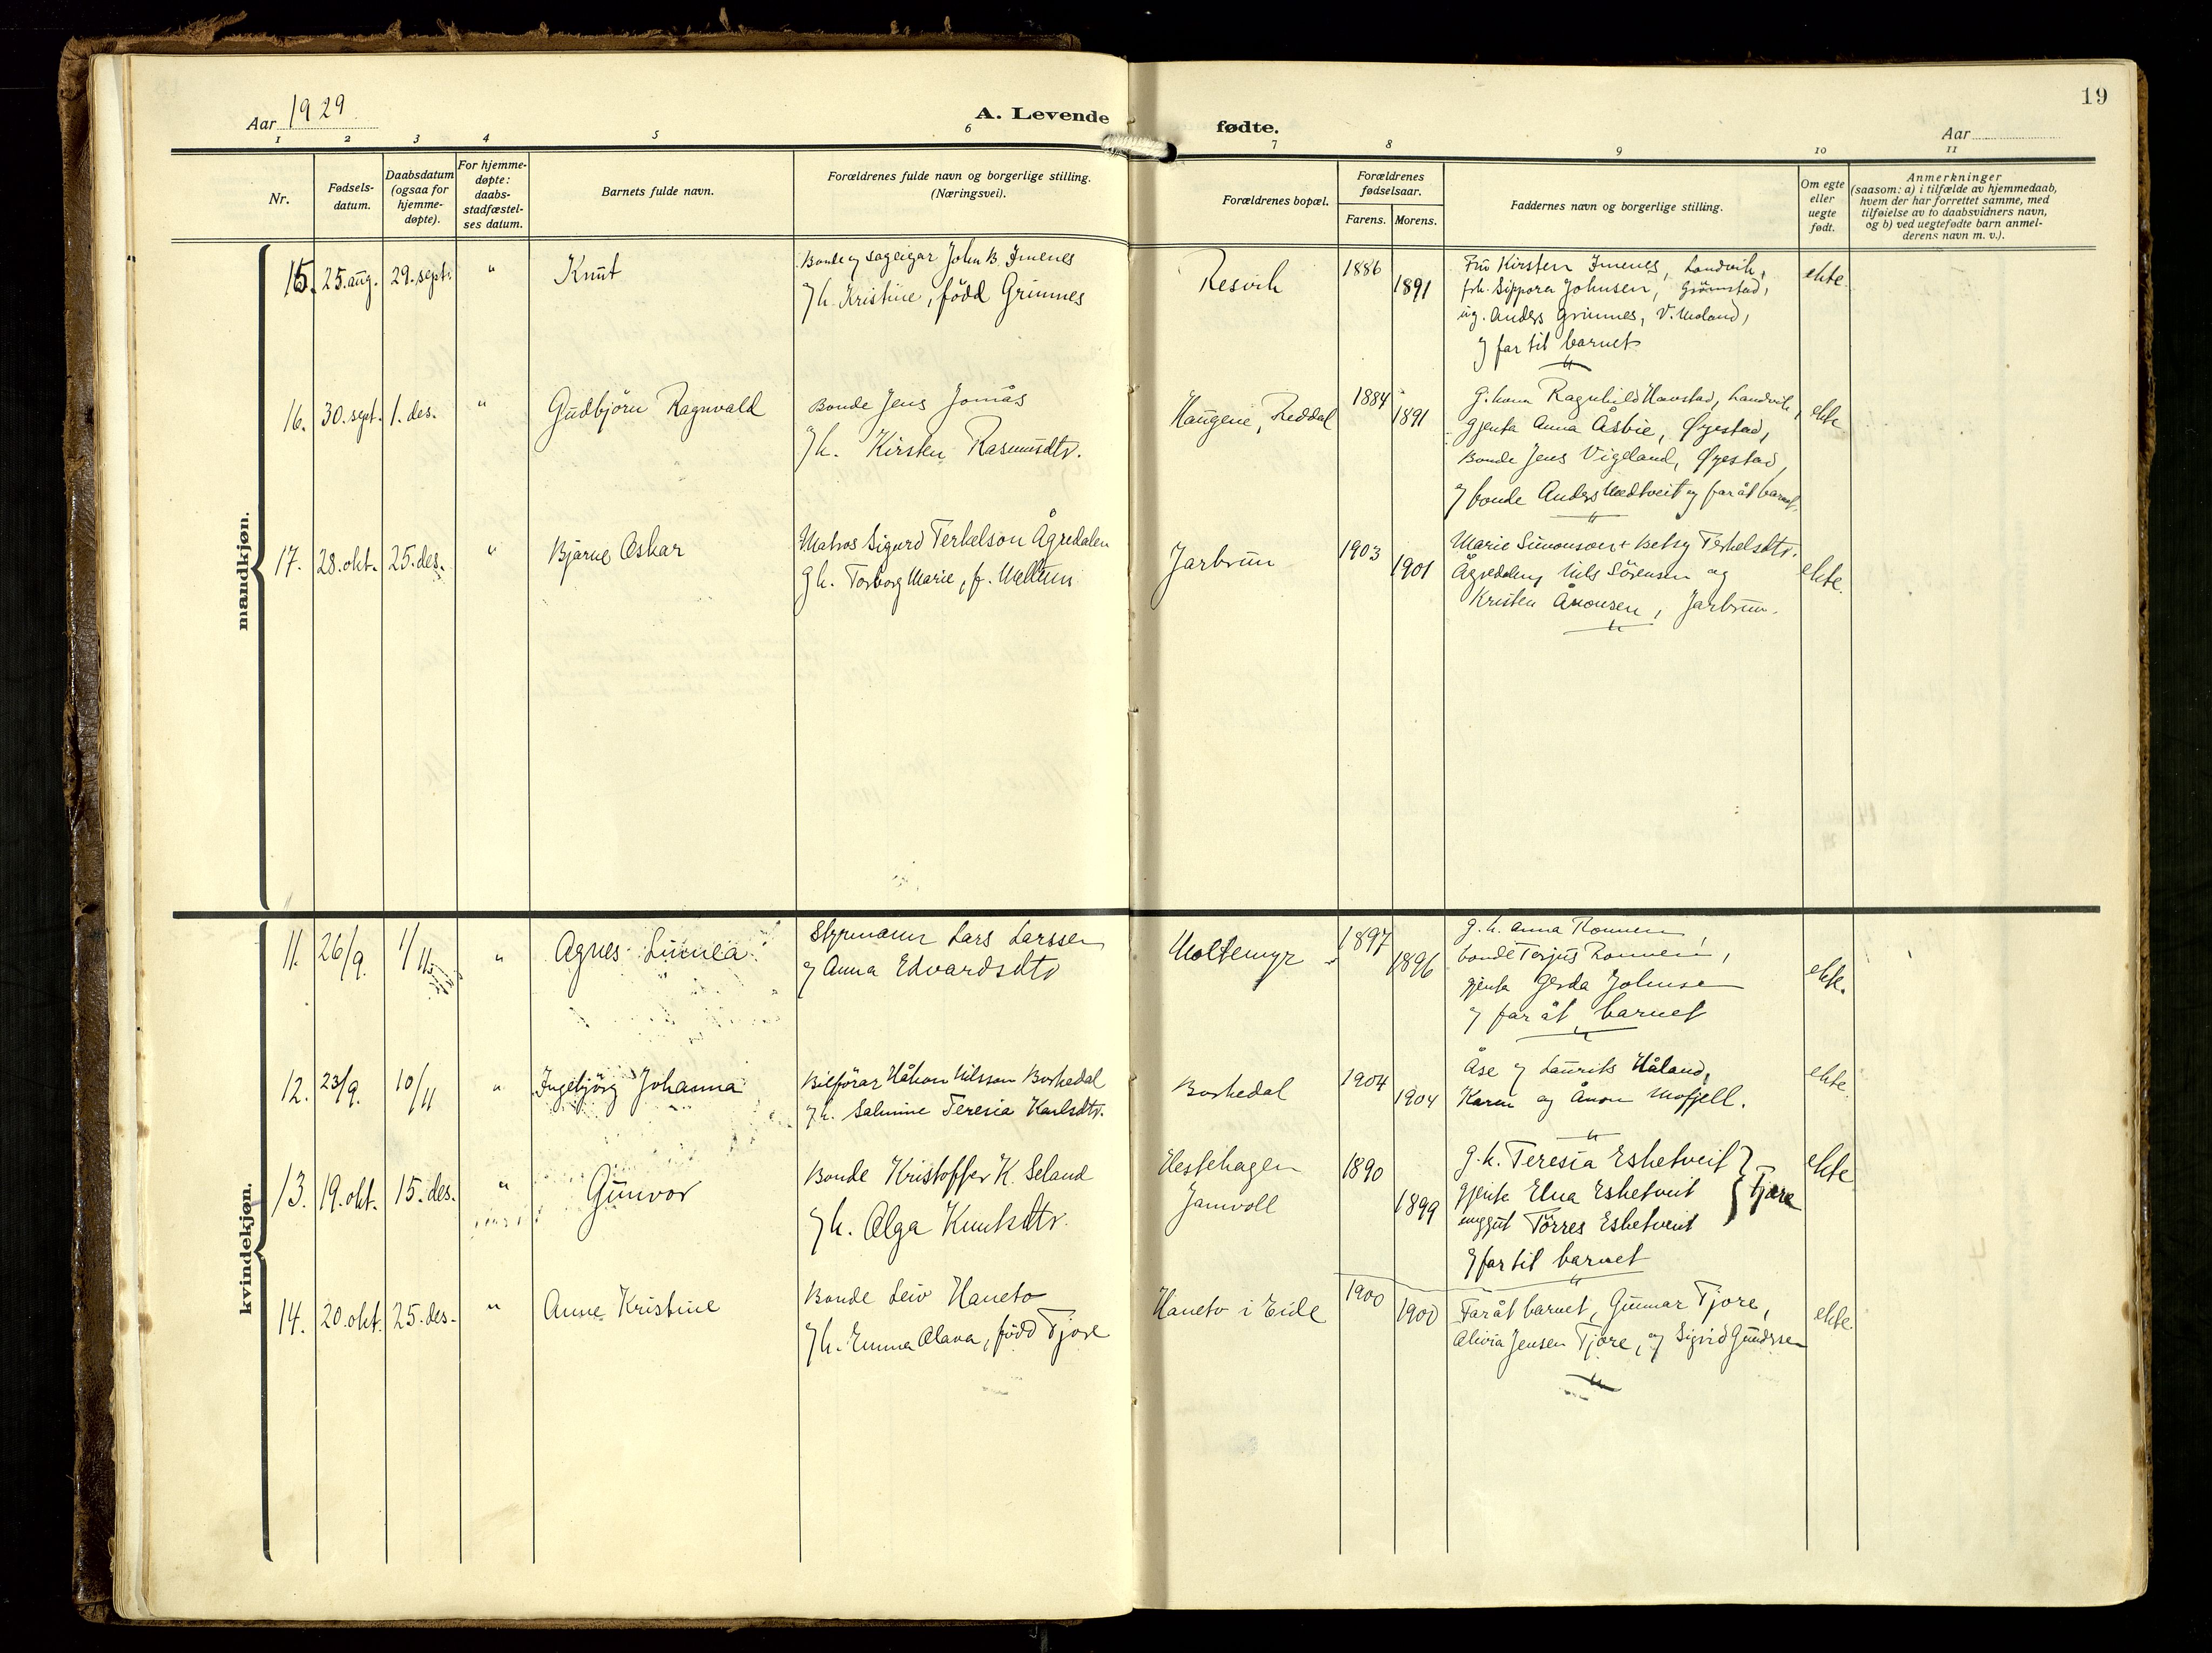 19
Aar 1929
A. Levende fødte.
Aar
1 2 3 4 5 6 7 8 9 10 11
Nr.
Fødsels-
datum.
Daabsdatum
(ogsaa for
hjemme-
døpte).
For hjemme-
døpte:
daabs-
stadfæstel-
ses datum.
Barnets fulde navn.
Forældrenes fulde navn og borgerlige stilling.
(Næringsvei).
Forældrenes bopæl.
Forældrenes
fødselsaar.
Farens. Morens.
Faddernes navn og borgerlige stilling.
Om egte
eller
uegte
født.
Anmerkninger
(saasom: a) i tilfælde av hjemmedaab,
hvem der har forrettet samme, med
tilføielse av to daabsvidners navn,
og b) ved uegtefødte barn anmel-
derens navn m. v.).
mandkjøn.
15. 25. aug. 29. sept. " Knut
Bonde og sageigar John B. Imenes
og h. Kristine, född Grimnes
Resvik
1886
1891
Fru Kirsten Imenes, Landvik,
frk. Sippora Johnsen, Grimstad,
ug. Anders Grimnes, V. Moland,
og far til barnet
ekte
16. 30. sept. 1. des. " Gudbjörn Ragnvald
Bonde Jens Jomås
og h. Kirsten Rasmusdtr.
Haugene, Reddal
1884
1891
G. kona Ragnhild Havstad, Landvik,
gjenta Anna Åsbie, Øyestad,
Bonde Jens Vigeland, Øyestad,
og bonde Anders Hedtveit og far åt barnet.
ekte
17. 28. okt. 25. des. " Bjarne Oskar
Matros Sigurd Terkelson Ågredalen
g h. Torborg Marie, f. Mellum
Jarbrun
1903
1901
Marie Simonsen + Betsy Terkelsdtr.
Ågredalen, Nils Sörensen og
Kristen Ånonsen, Jarbrun.
ekte.
kvindekjøn.
11. 26/9. 1/11 " Agnes Linnea
Styrmann Lars Larssen
og Anna Edvardsdtr
Moltemyr
1897
1896
g. k. Anna Ronnen,
bonde Terjus Ronnen,
gjenta Gerda Johnsen
og far åt barnet
ekte.
12. 23/9. 10/11 " Ingebjörg Johanna
Bilförar Håkon Nilsson Borkedal
og h. Salmine Teresia Karlsdtr.
Borkedal
1904
1904
Åse og Laurits Håland,
Karen og Ånon Mofjell.
ekte
13. 19. okt. 15. des. " Gunvor
Bonde Kristoffer K. Seland
og h. Olga Knutsdtr.
Hestehagen
Janvoll
1890
1899
g. k. Teresia Esketveit
gjenta Elna Esketveit } Fjære
unggut Törres Esketveit
og far til barnet
ekte
14. 20. okt. 25. des. " Anne Kristine
Bonde Leiv Haneto
og h. Emma Olava, född Tjore
Haneto i Eide
1900
1900
Far åt barnet, Gunnar Tjore,
Olivia Jensen Tjore, og Sigrid Gundersen
ekte.